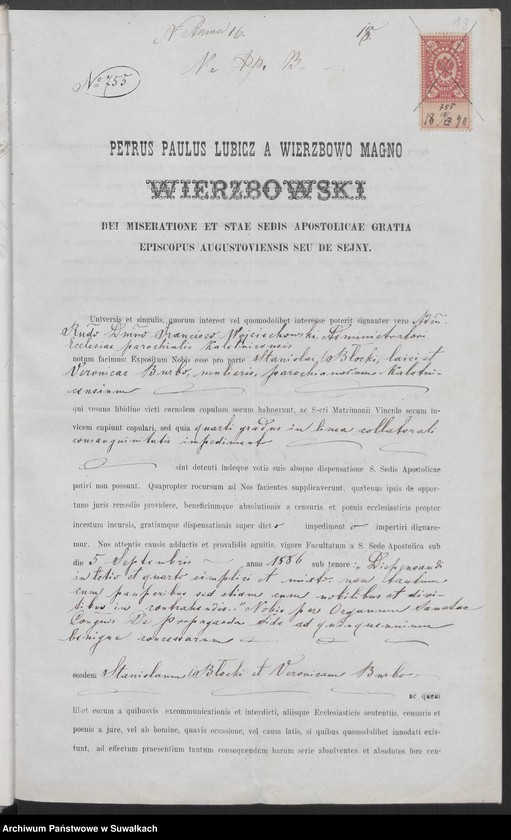 16.
13
No 755
755
18 90
PETRUS PAULUS LUBICZ A WIERZBOWO MAGNO
WIERZBOWSKI
DEI MISERATIONE ET STAE SEDIS APOSTOLICAE GRATIA
EPISCOPUS AUGUSTOVIENSIS SEU DE SEJNY.
Universis et singulis, quorum interest vel quomodolibet interesse poterit signanter vero
Rndo Dmno Francisco Wojciechowski, Administratori
Ecclesiae parochialis Kaletnicensis
notum facimus: Expositum Nobis esse pro parte Stanislai Błocki, laici, et
Veronicae Burbo, mulieris, parochianorum Kaletni-
censium
qui vesano libidine victi carnalem copulam secum habuerunt, ac S-cti Matrimonii Vinculo secum in-
vicem cupiunt copulari, sed quia quarti gradus in linea collaterali
consanguinitatis impedimento
sint detenti indeque votis suis absque dispensatione S. Sedis Apostolicae
potiri non possunt. Quapropter recursum ad Nos facientes supplicaverunt, quatenus ipsis de oppor-
tuno juris remedio providere, beneficiumque absolutionis a censuris et poenis ecclesiasticis propter
incestum incursis, gratiamque dispensationis super dicto impedimento impertiri dignare-
mur. Nos attentis causis adductis et praevalidis agniti, vigore Facultatum a S. Sede Apostolica sub
die 5 Septembris anno 1886 sub tenore: „Dispensandi
in tertio et quarto simplici et mixto non tantum
cum pauperibus sed etiam cum nobilibus et divi-
tibus in contrahendis." Nobis per Organum Sanctae
Congnis de propaganda fide ad quinquennium
benigne concessarum
eosdem Stanislaum Błocki et Veronicam Burbo
ac quem
libet eorum a quibusvis excommunicationis et interdicti, aliisque Ecclesiasticis sententiis, censuris et
poenis a jure, vel ab homine, quavis occasione, vel causa latis, si quibus quomodolibet innodati exis-
tunt, ad effectum praesentium tantum consequendum harum serie absolventes et absolutos fore cen-
Archiwum Państwowe w Suwałkach